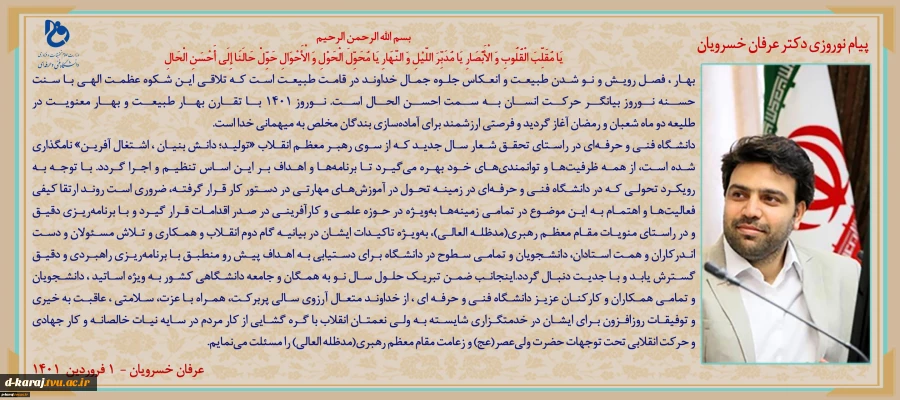 پیام نوروزی دکتر عرفان خسرویان
وزارت علوم تحقیقات و فناوری
دانشگاه فنی و حرفه‌ای
بسم الله الرحمن الرحیم
يَا مُقَلِّبَ الْقُلُوبِ وَ الْأَبْصَارِ يَا مُدَبِّرَ اللَّيْلِ وَ النَّهَارِ يَا مُحَوِّلَ الْحَوْلِ وَ الْأَحْوَالِ حَوِّلْ حَالَنَا إِلَى أَحْسَنِ الْحَالِ
بهار ، فصل رویش و نو شدن طبیعت و انعکاس جلوه جمال خداوند در قامت طبیعت است که تلاقی این شکوه عظمت الهی با سنت
حسنه نوروز بیانگر حرکت انسان به سمت احسن الحال است. نوروز ۱۴۰۱ با تقارن بهار طبیعت و بهار معنویت در
طلیعه دو ماه شعبان و رمضان آغاز گردید و فرصتی ارزشمند برای آماده‌سازی بندگان مخلص به میهمانی خدا است.
دانشگاه فنی و حرفه‌ای در راستای تحقق شعار سال جدید که از سوی رهبر معظم انقلاب «تولید؛ دانش بنیان ، اشتغال آفرین» نامگذاری
شده است، از همه ظرفیت‌ها و توانمندی‌های خود بهره می‌گیرد تا برنامه‌ها و اهداف بر این اساس تنظیم و اجرا گردد. با توجه به
رویکرد تحولی که در دانشگاه فنی و حرفه‌ای در زمینه تحول در آموزش‌های مهارتی در دستور کار قرار گرفته، ضروری است روند ارتقا کیفی
فعالیت‌ها و اهتمام به این موضوع در تمامی زمینه‌ها به‌ویژه در حوزه علمی و کارآفرینی در صدر اقدامات قرار گیرد و با برنامه‌ریزی دقیق
و در راستای منویات مقام معظم رهبری(مدظله العالی)، به‌ویژه تاکیدات ایشان در بیانیه گام دوم انقلاب و همکاری و تلاش مسئولان و دست
اندرکاران و همت استادان، دانشجویان و تمامی سطوح در دانشگاه برای دستیابی به اهداف پیش رو منطبق با برنامه‌ریزی راهبردی و دقیق
گسترش یابد و با جدیت دنبال گردد.اینجانب ضمن تبریک حلول سال نو به همگان و جامعه دانشگاهی کشور به ویژه اساتید ، دانشجویان
و تمامی همکاران و کارکنان عزیز دانشگاه فنی و حرفه ای ، از خداوند متعال آرزوی سالی پربرکت، همراه با عزت، سلامتی ، عاقبت به خیری
و توفیقات روزافزون برای ایشان در خدمتگزاری شایسته به ولی نعمتان انقلاب با گره گشایی از کار مردم در سایه نیات خالصانه و کار جهادی
و حرکت انقلابی تحت توجهات حضرت ولی‌عصر(عج) و زعامت مقام معظم رهبری(مدظله العالی) را مسئلت می‌نمایم.
عرفان خسرویان - ۱ فروردین ۱۴۰۱
d-karaj.tvu.ac.ir